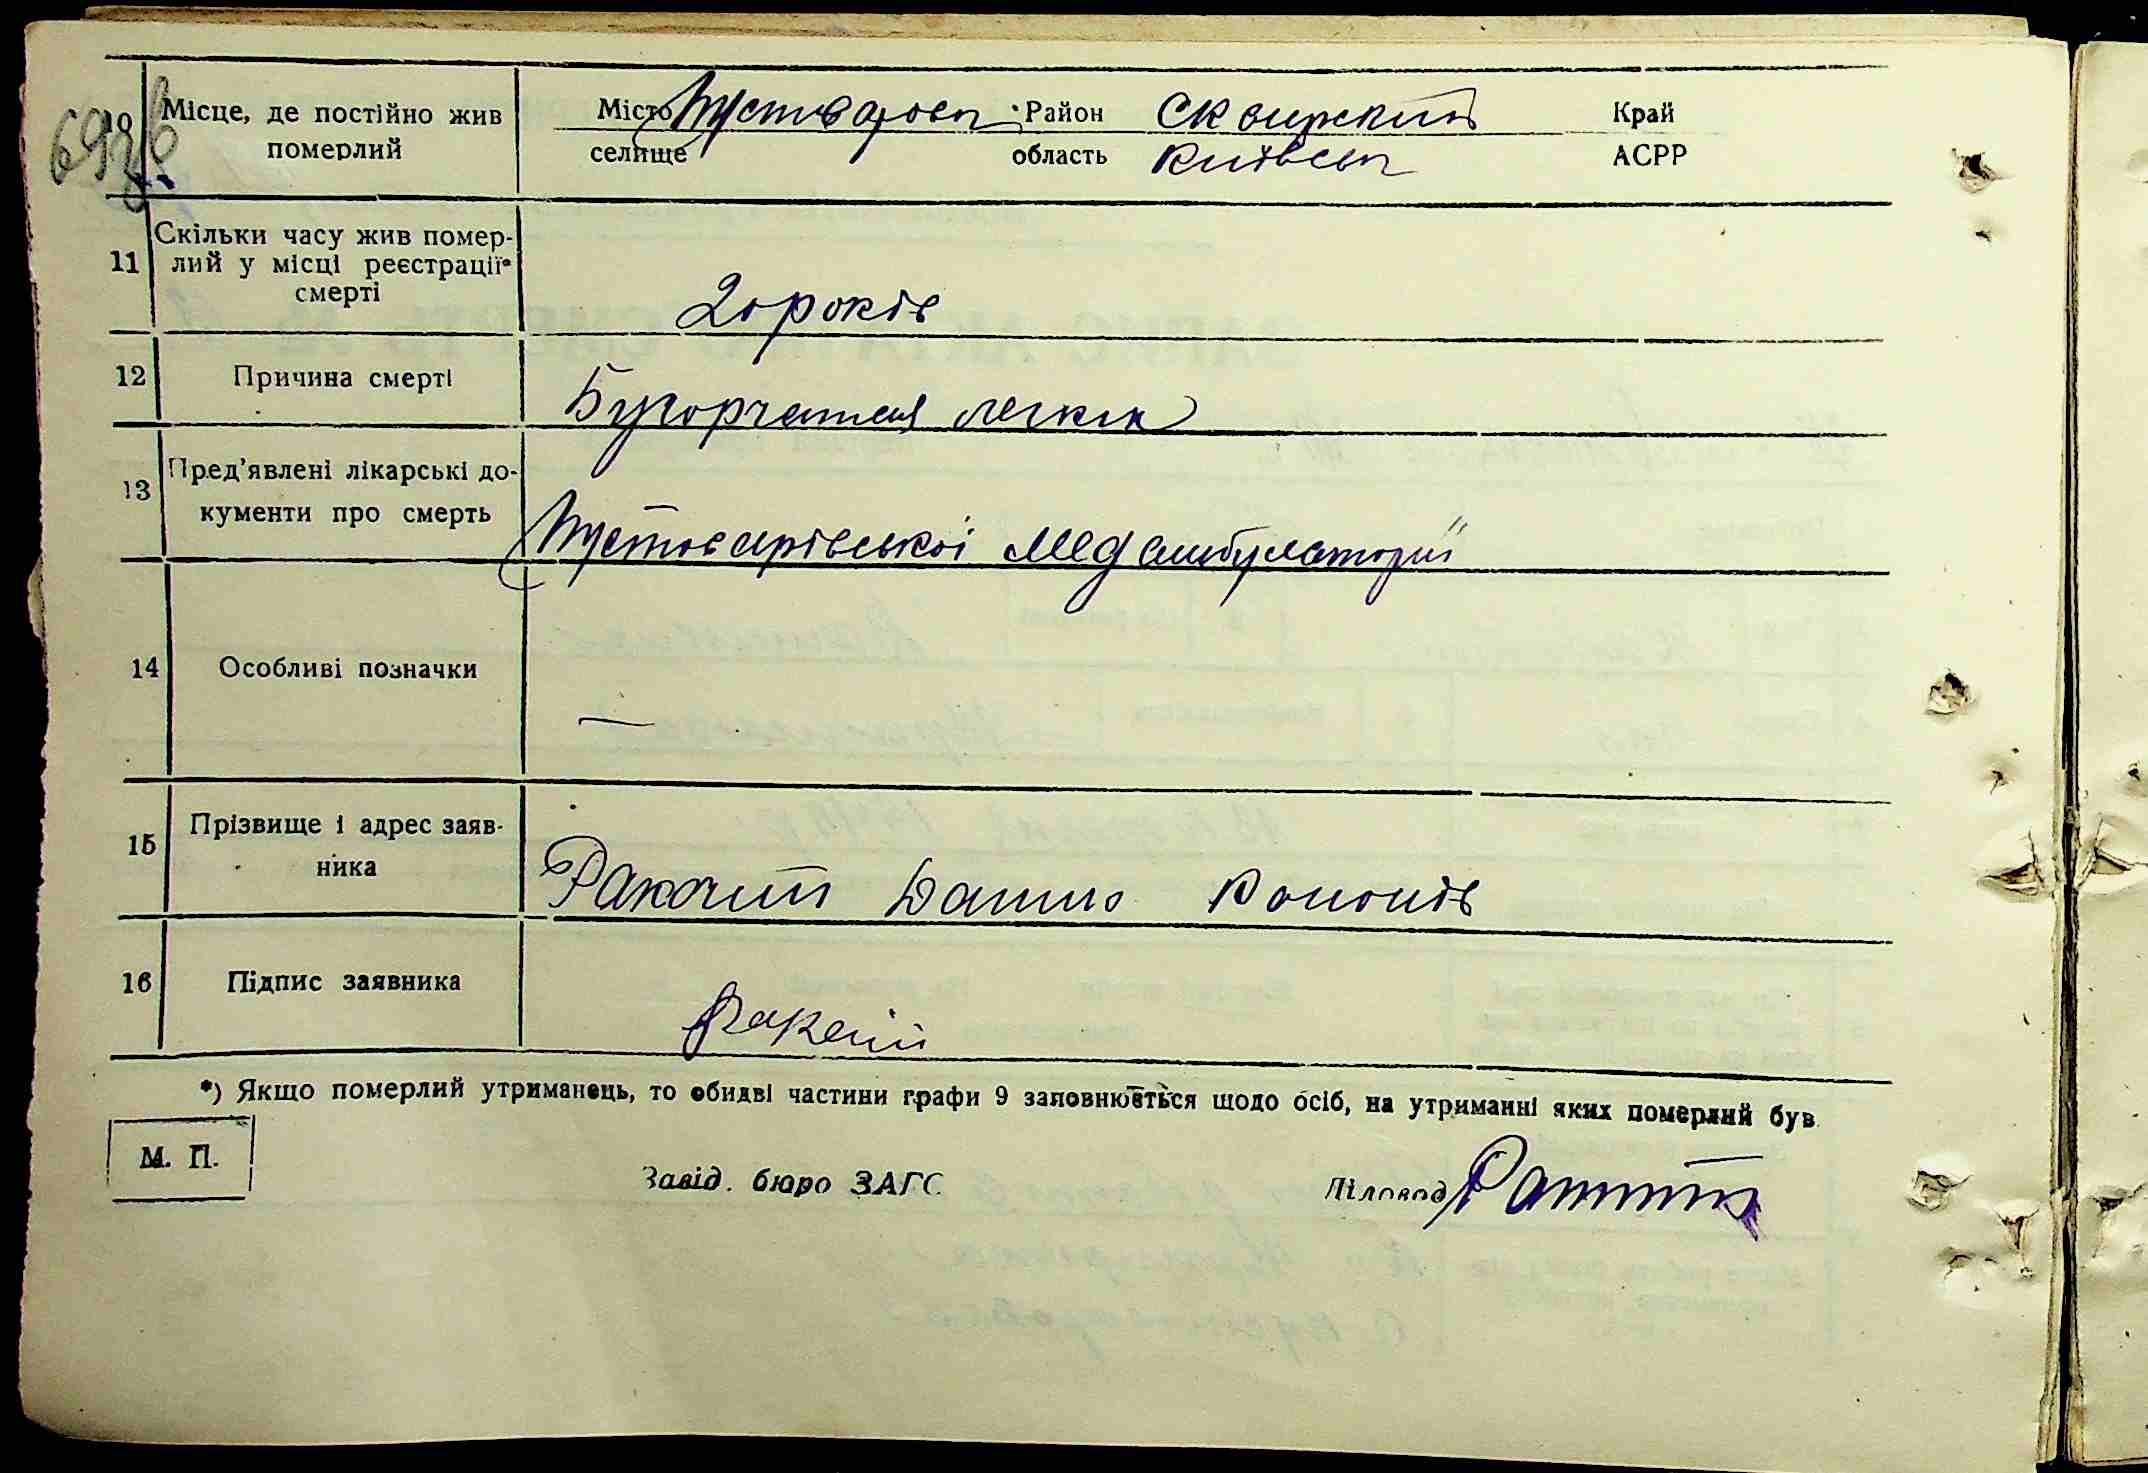 10 Місце, де постійно жив Місто Пустоваров Район Сквирский Край
померлий селище область Київськ АСРР
11 Скільки часу жив помер-
лий у місці реєстрації*
смерті
20 років
12 Причина смерті Бугорчатка легких
13 Пред'явлені лікарські до-
кументи про смерть Пустоварівської Мед амбулаторії
14 Особливі позначки —
15 Прізвище і адрес заяв-
ника Ракочий Данило
16 Підпис заявника
*) Якщо померлий утриманець, то обидві частини графи 9 заповнюються щодо осіб, на утриманні яких померлий був
М. П. Завід. бюро ЗАГС Діловод